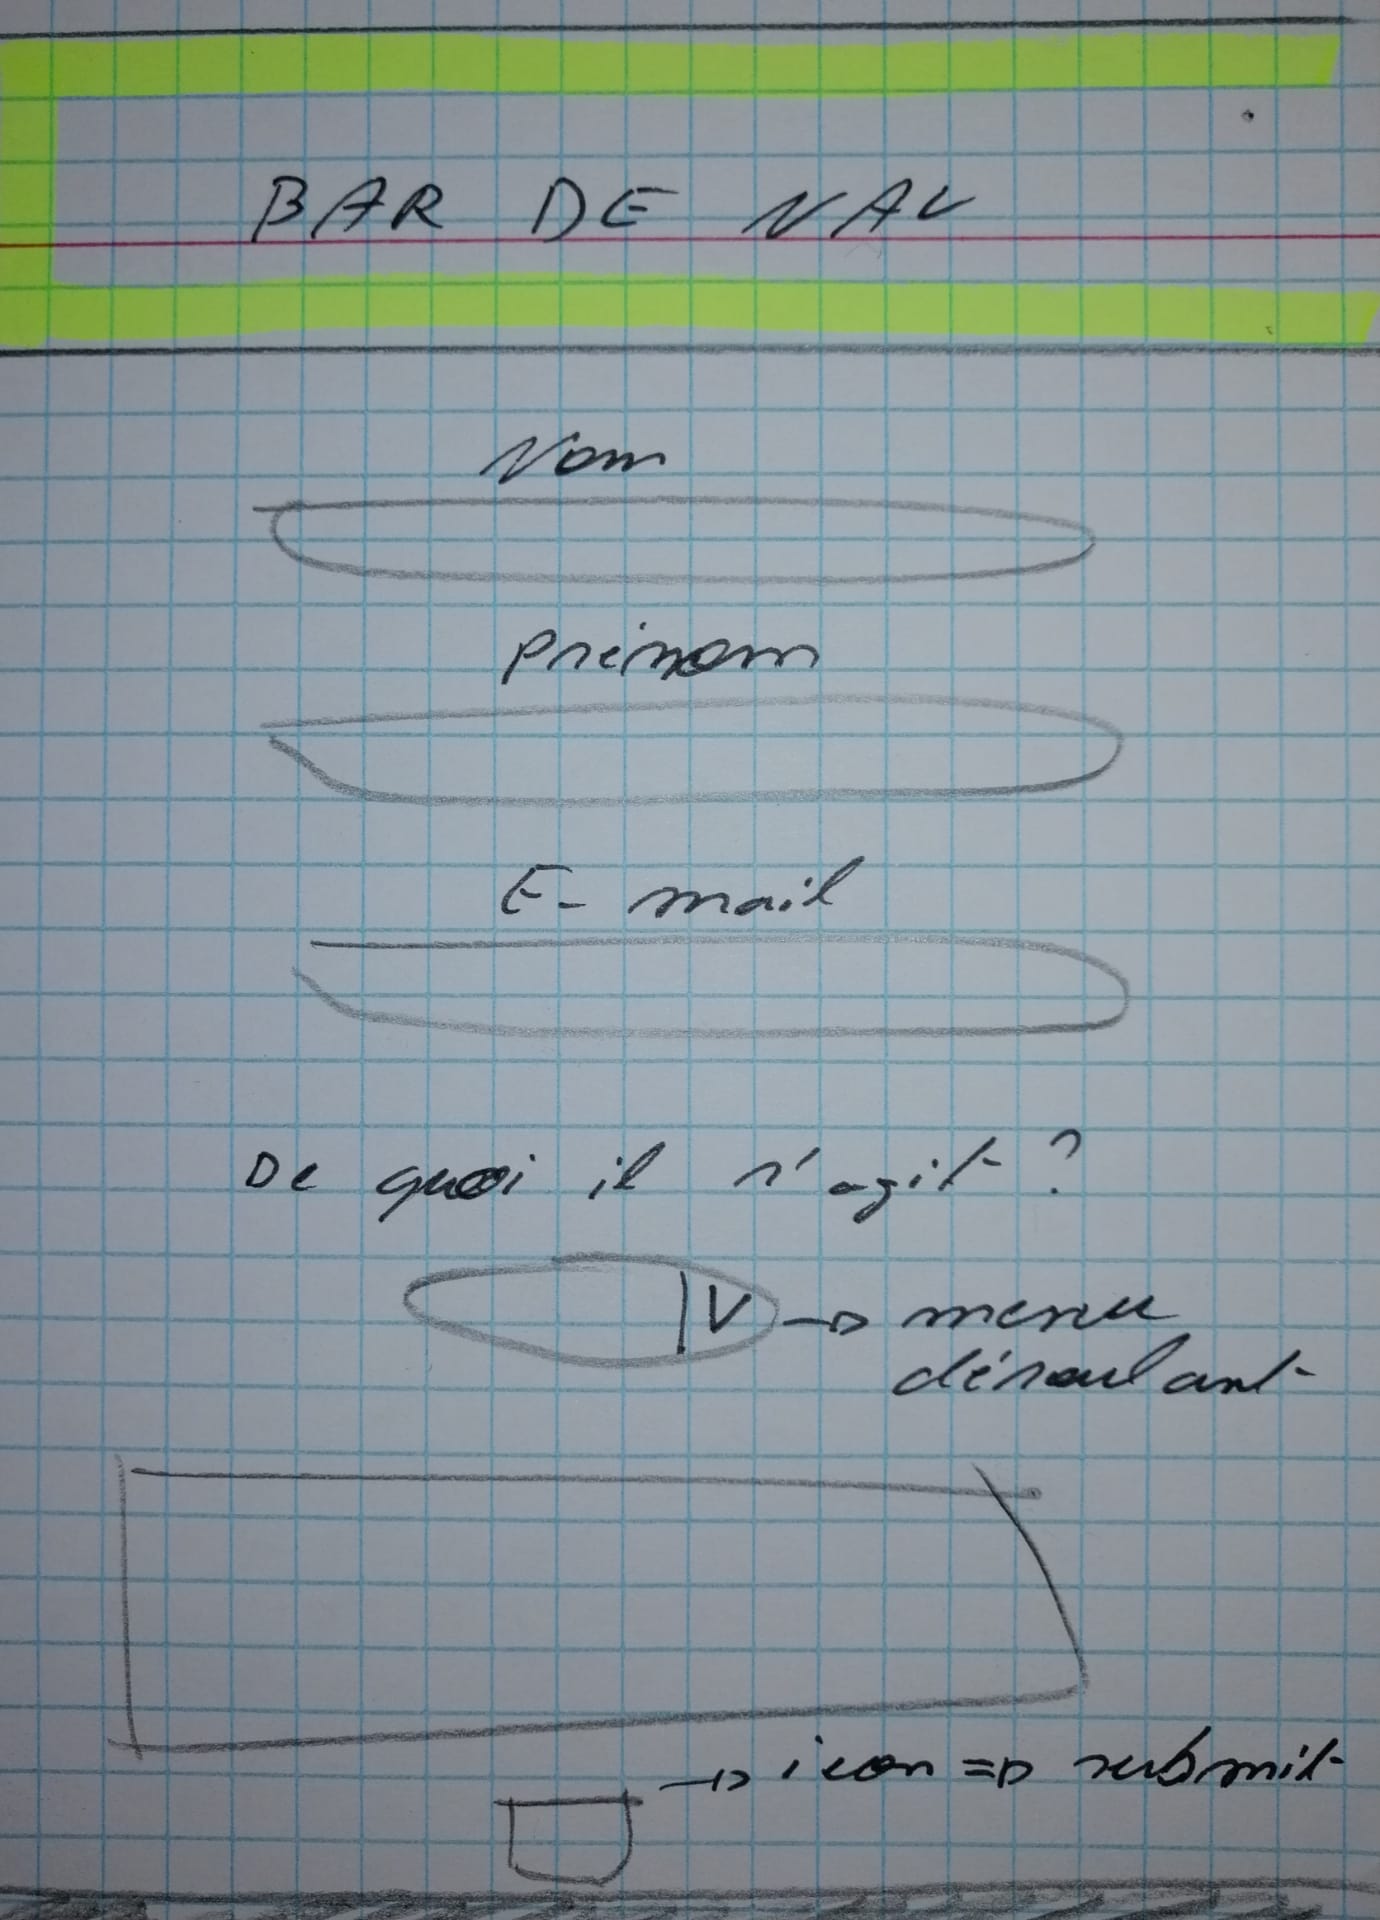 BAR DE NAV
Nom
prénom
E-mail
De quoi il s'agit ?
V → menu
déroulant
→ icon => submit